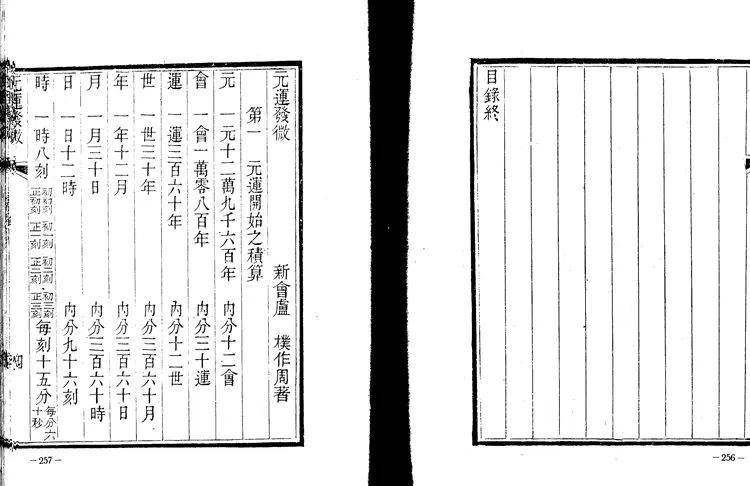 目錄終
－256－
元運發微
新會盧　樸作周著
第一　元運開始之積算
元　一元十二萬九千六百年　內分十二會
會　一會一萬零八百年　內分三十運
運　一運三百六十年　內分十二世
世　一世三十年　內分三百六十月
年　一年十二月　內分三百六十日
月　一月三十日　內分三百六十時
日　一日十二時　內分九十六刻
時　一時八刻　初初刻　初一刻　初二刻　初三刻　正初刻　正一刻　正二刻　正三刻　每刻十五分　每分六十秒
元運發微
－257－